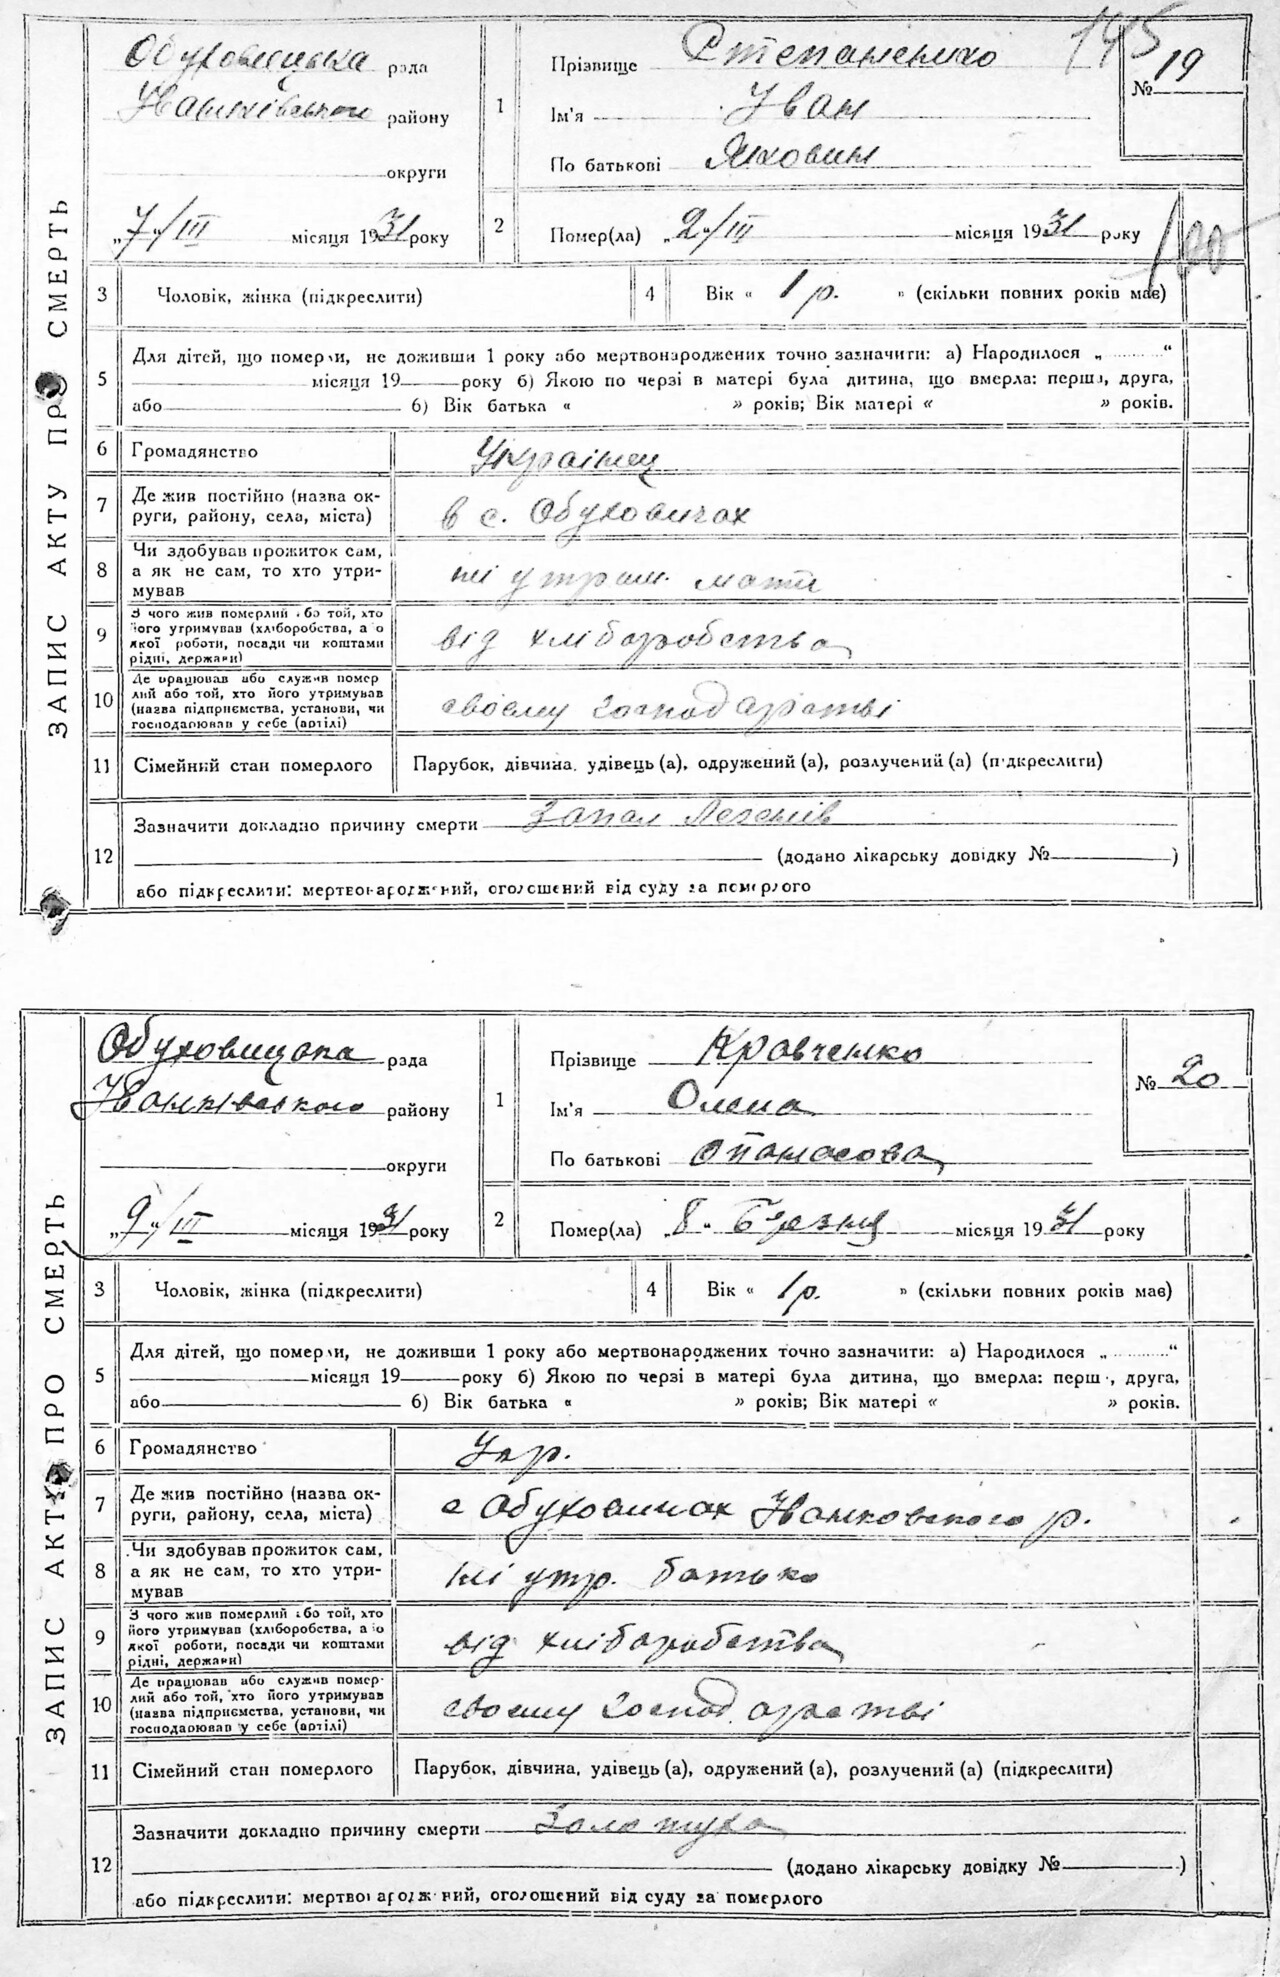 ЗАПИС АКТУ ПРО СМЕРТЬ
Обуховицька рада
Іванківського району
округи
„7“/III місяця 1931 року
1
Прізвище Степаненко
Ім'я Іван
По батькові Яковин
145
№ 19
2
Помер(ла) „2“/III місяця 1931 року
100
3 Чоловік, жінка (підкреслити)
4 Вік « 1 р. » (скільки повних років має)
5 Для дітей, що померли, не доживши 1 року або мертвонароджених точно зазначити: а) Народилося „ “
місяця 19 року б) Якою по черзі в матері була дитина, що вмерла: перша, друга,
або 6) Вік батька « » років; Вік матері « » років.
6 Громадянство Українец
7 Де жив постійно (назва ок-
руги, району, села, міста) в с. Обуховичах
8 Чи здобував прожиток сам,
а як не сам, то хто утри-
мував ні утрим. мати
9 З чого жив померлий або той, хто
його утримував (хліборобства, або
якої роботи, посади чи коштами
рідні, держави) від хліборобства
10 Де працював або служив помер
лий або той, хто його утримував
(назва підприємства, установи, чи
господарював у себе (артілі) своєму господарстві
11 Сімейний стан померлого Парубок, дівчина, удівець (а), одружений (а), розлучений (а) (підкреслити)
12 Зазначити докладно причину смерти Запал Легенів
(додано лікарську довідку № )
або підкреслити: мертвонароджений, оголошений від суду за померлого
ЗАПИС АКТУ ПРО СМЕРТЬ
Обуховицька рада
Іванківського району
округи
„9“/III місяця 1931 року
1
Прізвище Кравченко
Ім'я Олена
По батькові Опанасова
№ 20
2
Помер(ла) „8“ Березня місяця 1931 року
3 Чоловік, жінка (підкреслити)
4 Вік « 1 р. » (скільки повних років має)
5 Для дітей, що померли, не доживши 1 року або мертвонароджених точно зазначити: а) Народилося „ “
місяця 19 року б) Якою по черзі в матері була дитина, що вмерла: перш , друга,
або 6) Вік батька « » років; Вік матері « » років.
6 Громадянство Укр.
7 Де жив постійно (назва ок-
руги, району, села, міста) с Обуховичах Іванковского р.
8 Чи здобував прожиток сам,
а як не сам, то хто утри-
мував ні утр. батько
9 З чого жив померлий або той, хто
його утримував (хліборобства, або
якої роботи, посади чи коштами
рідні, держави) від хліборобства
10 Де працював або служив помер-
лий або той, хто його утримував
(назва підприємства, установи, чи
господарював у себе (артілі) своєму господарстві
11 Сімейний стан померлого Парубок, дівчина, удівець (а), одружений (а), розлучений (а) (підкреслити)
12 Зазначити докладно причину смерти Золотуха
(додано лікарську довідку № )
або підкреслити: мертвонароджений, оголошений від суду за померлого